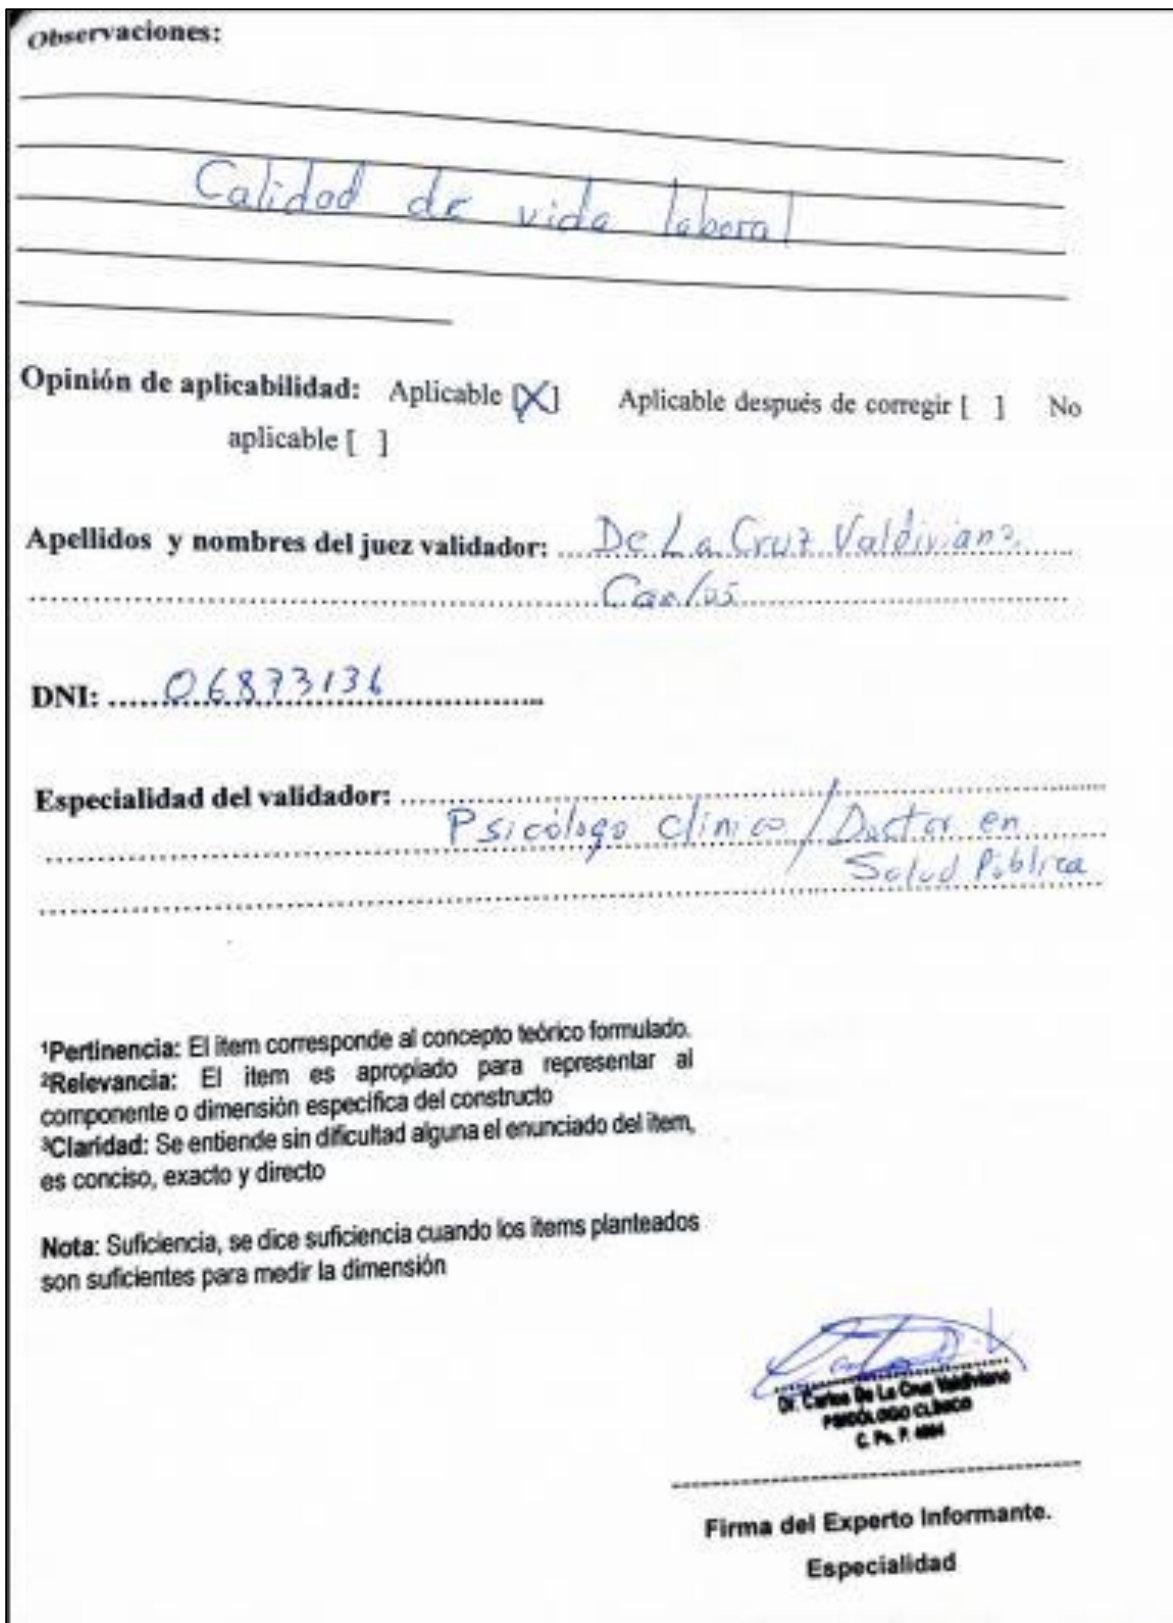 Observaciones:
Calidad de vida laboral
Opinión de aplicabilidad: Aplicable [X] Aplicable después de corregir [ ] No
aplicable [ ]
Apellidos y nombres del juez validador: De La Cruz Valdiviano,
Carlos
DNI: 06873136
Especialidad del validador:
Psicólogo Clínico / Doctor en
Salud Pública
¹Pertinencia: El ítem corresponde al concepto teórico formulado.
²Relevancia: El item es apropiado para representar al
componente o dimensión específica del constructo
³Claridad: Se entiende sin dificultad alguna el enunciado del ítem,
es conciso, exacto y directo
Nota: Suficiencia, se dice suficiencia cuando los ítems planteados
son suficientes para medir la dimensión
Dr. Carlos De La Cruz Valdiviano
PSICÓLOGO CLÍNICO
C. Ps. P.
Firma del Experto Informante.
Especialidad